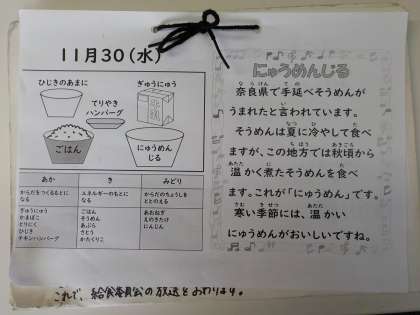 11月30(水)
ひじきのあまに
ぎゅうにゅう
てりやき
ハンバーグ
ごはん
にゅうめん
じる
あか
き
みどり
からだをつくるもとに
なる
エネルギーのもとに
なる
からだのちょうしを
ととのえる
ぎゅうにゅう
かまぼこ
とりにく
ひじき
チキンハンバーグ
ごはん
そうめん
あぶら
さとう
かたくりこ
あおねぎ
えのきたけ
にんじん
にゅうめんじる
奈良県で手延べそうめんが
うまれたと言われています。
そうめんは夏に冷やして食べ
ますが、この地方では秋頃から
温かく煮たそうめんを食べ
ます。これが「にゅうめん」です。
寒い季節には、温かい
にゅうめんがおいしいですね。
これで、給食委員会の放送をおわります。